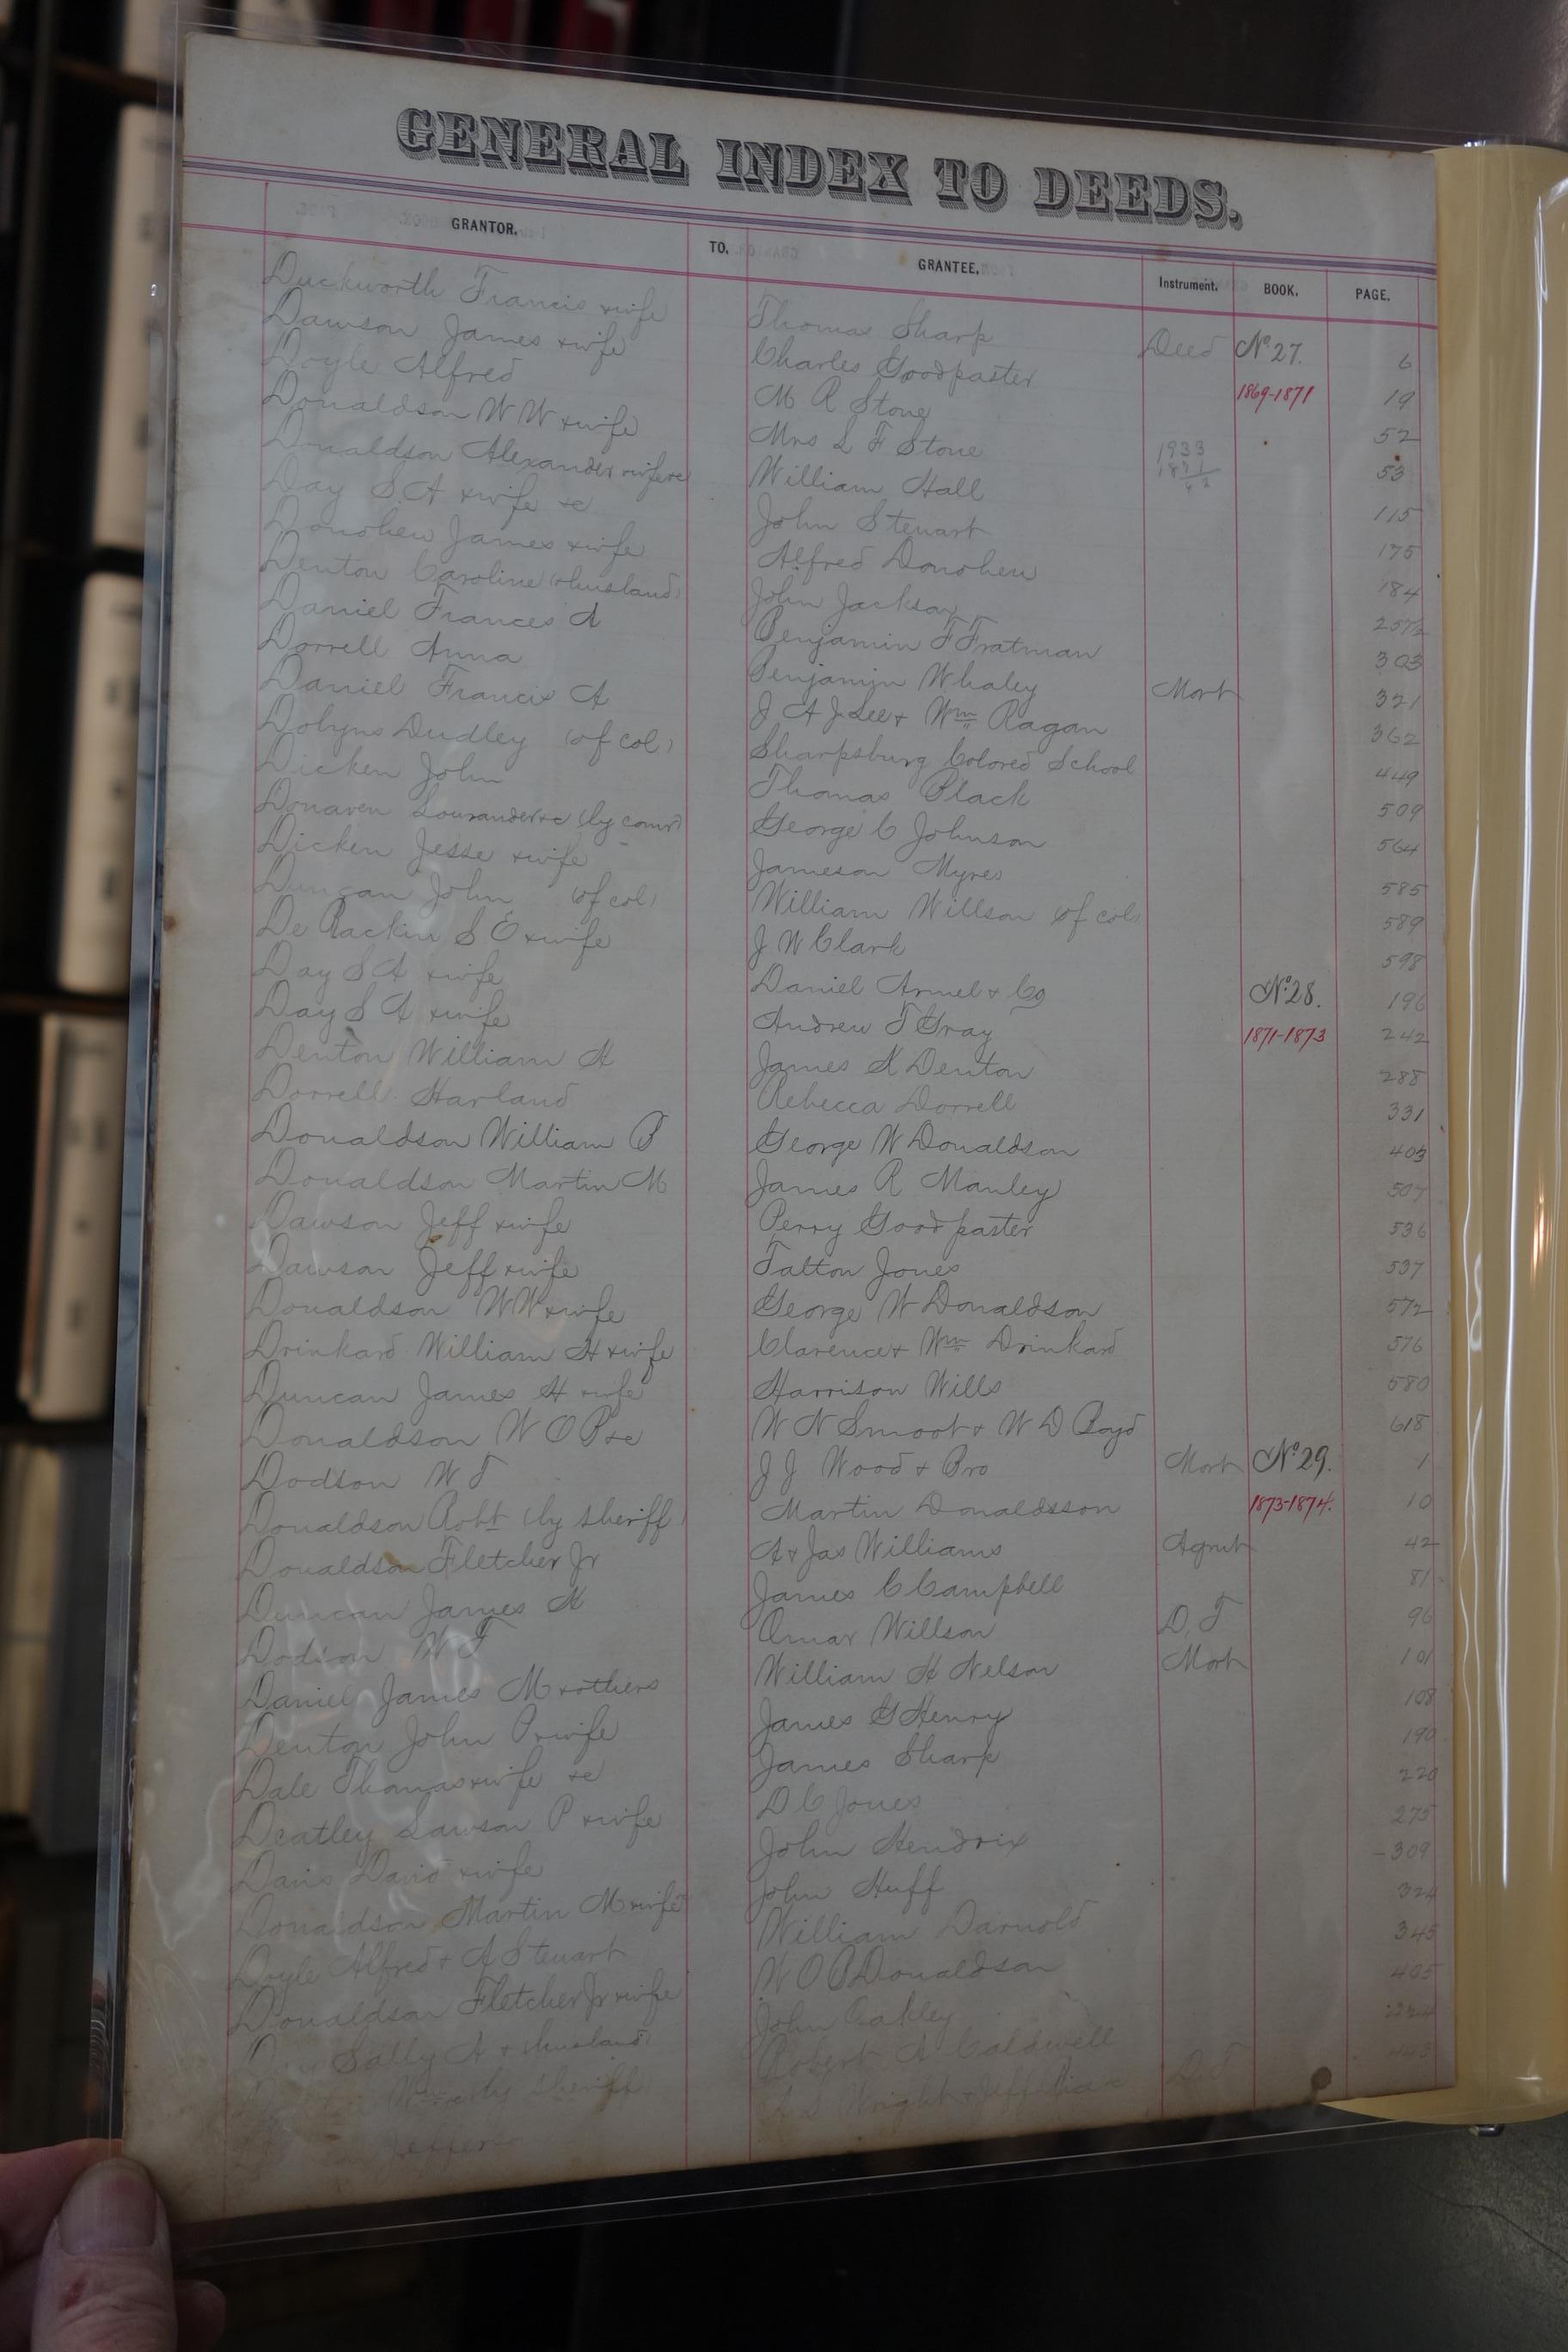 GENERAL INDEX TO DEEDS.
GRANTOR. TO. GRANTEE. Instrument. BOOK. PAGE.
Duckworth Francis & wife Thomas Sharp Deed No 27. 6
Dawson James & wife Charles Goodpaster 1869-1871 19
Doyle Alfred M R Stone 52
Donaldson W W & wife Mrs L F Stone 1933 53
Donaldson Alexander & wife &c William Hall 1871 115
Day S. A & wife &c John Stewart 62 175
Donohew James & wife Alfred Donohew 184
Denton Caroline (& husband) John Jackson
Daniel Frances A Benjamin F Fratman 303
Dorrell Anna Benjamin Whaley Mort 321
Daniel Francis A J A J Lee & Wm Ragan 362
Dobyns Dudley (of col) Sharpsburg Colored School 449
Dicken John Thomas Black 509
Donaven &c (by comr) George C Johnson 564
Dicken Jesse & wife Jameson Myres 585
Duncan John (of col) William Willson (of col) 589
De Rackin S E & wife J W Clark 598
Day S A & wife Daniel Armel & Co No 28. 196
Day S A & wife Andrew T Gray 1871-1873 242
Denton William H James K Denton 288
Dorrell Harland Rebecca Dorrell 331
Donaldson William B George W Donaldson 403
Donaldson Martin M James R Manley 507
Dawson Jeff & wife Perry Goodpaster 536
Dawson Jeff & wife Talton Jones 537
Donaldson W W & wife George W Donaldson 572
Drinkard William H & wife Clarence & Wm Drinkard 576
Duncan James H & wife Harrison Wills 580
Donaldson W O B &c W N Smoot & W D Boyd 618
Dodson W T J J Wood & Bro Mort No 29. 1
Donaldson Robt (by sheriff) Martin Donaldsson 1873-1874. 10
Donaldson Fletcher Jr A & Jas Williams Agmt 42
Duncan James K James C Campbell 81
Dodson W T Omar Willson D. T 96
Daniel James M & others William H Nelson Mort 101
Denton John P & wife James G Henry 108
Dale Thomas & wife &c James Sharp 190
Deatley Lawson P & wife D C Jones 220
Davis David & wife John Hendrix 275
Donaldson Martin M & wife John Huff 309
Doyle Alfred & A Stewart William Darnold 324
Donaldson Fletcher Jr & wife W O B Donaldson 345
Sally A & husband John Oakley 405
by sheriff Robert A Caldwell
Wright & Jeff D. T